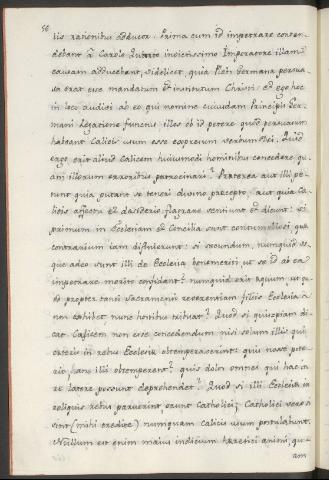 56
iis rationibus adducor. Prima cum id impetrare conten-
debant à Carolo Quinto invictissimo Imperatore illam
causam adducebant, videlicet, quia Plebi Germanæ persua-
sa erat eius mandatum et institutum Christi: et ego hæc
in loco audivi ab eo qui nomine cuiusdam Principis Ger-
mani Legatione functus, illos ob id petere quod persuasum
habeant Calicis usum esse expressum verbum Dei. Quid
ergo erit aliud Calicem huiusmodi hominibus concedere qu-
am illorum erroribus patrocinari? Præterea aut illi pe-
tunt quia putant se teneri divino præcepto, aut quia Ca-
licis affectu et desiderio flagrare veniunt et dicunt: si
primum in Ecclesiam et Concilia sunt contumeliosi, quæ
contrarium iam diffinierunt: si secundum, numquid us-
que adeo sunt illi de Ecclesia benemeriti ut se id ab ea
impetrare merito confidant? numquid erit æquum ut qu-
od propter tanti Sacramenti reverentiam filiis Ecclesia
non exhibet, nunc hostibus exhibeat? Quod si quispiam di-
cat Calicem non esse concedendum nisi solum illis qui
cæteris in rebus Ecclesiæ obtemperaverint: quis novit pote-
rit, hos illi obtemperent? quis dolos omnes qui hac in
re latere possunt deprehendet? Quod si illi Ecclesiæ in
reliquis rebus paruerint, erunt Catholici; Catholici vero si
sint (mihi credite) numquam Calicis usum postulabunt.
Nullum est enim maius indicium hæretici animi, qu-
am